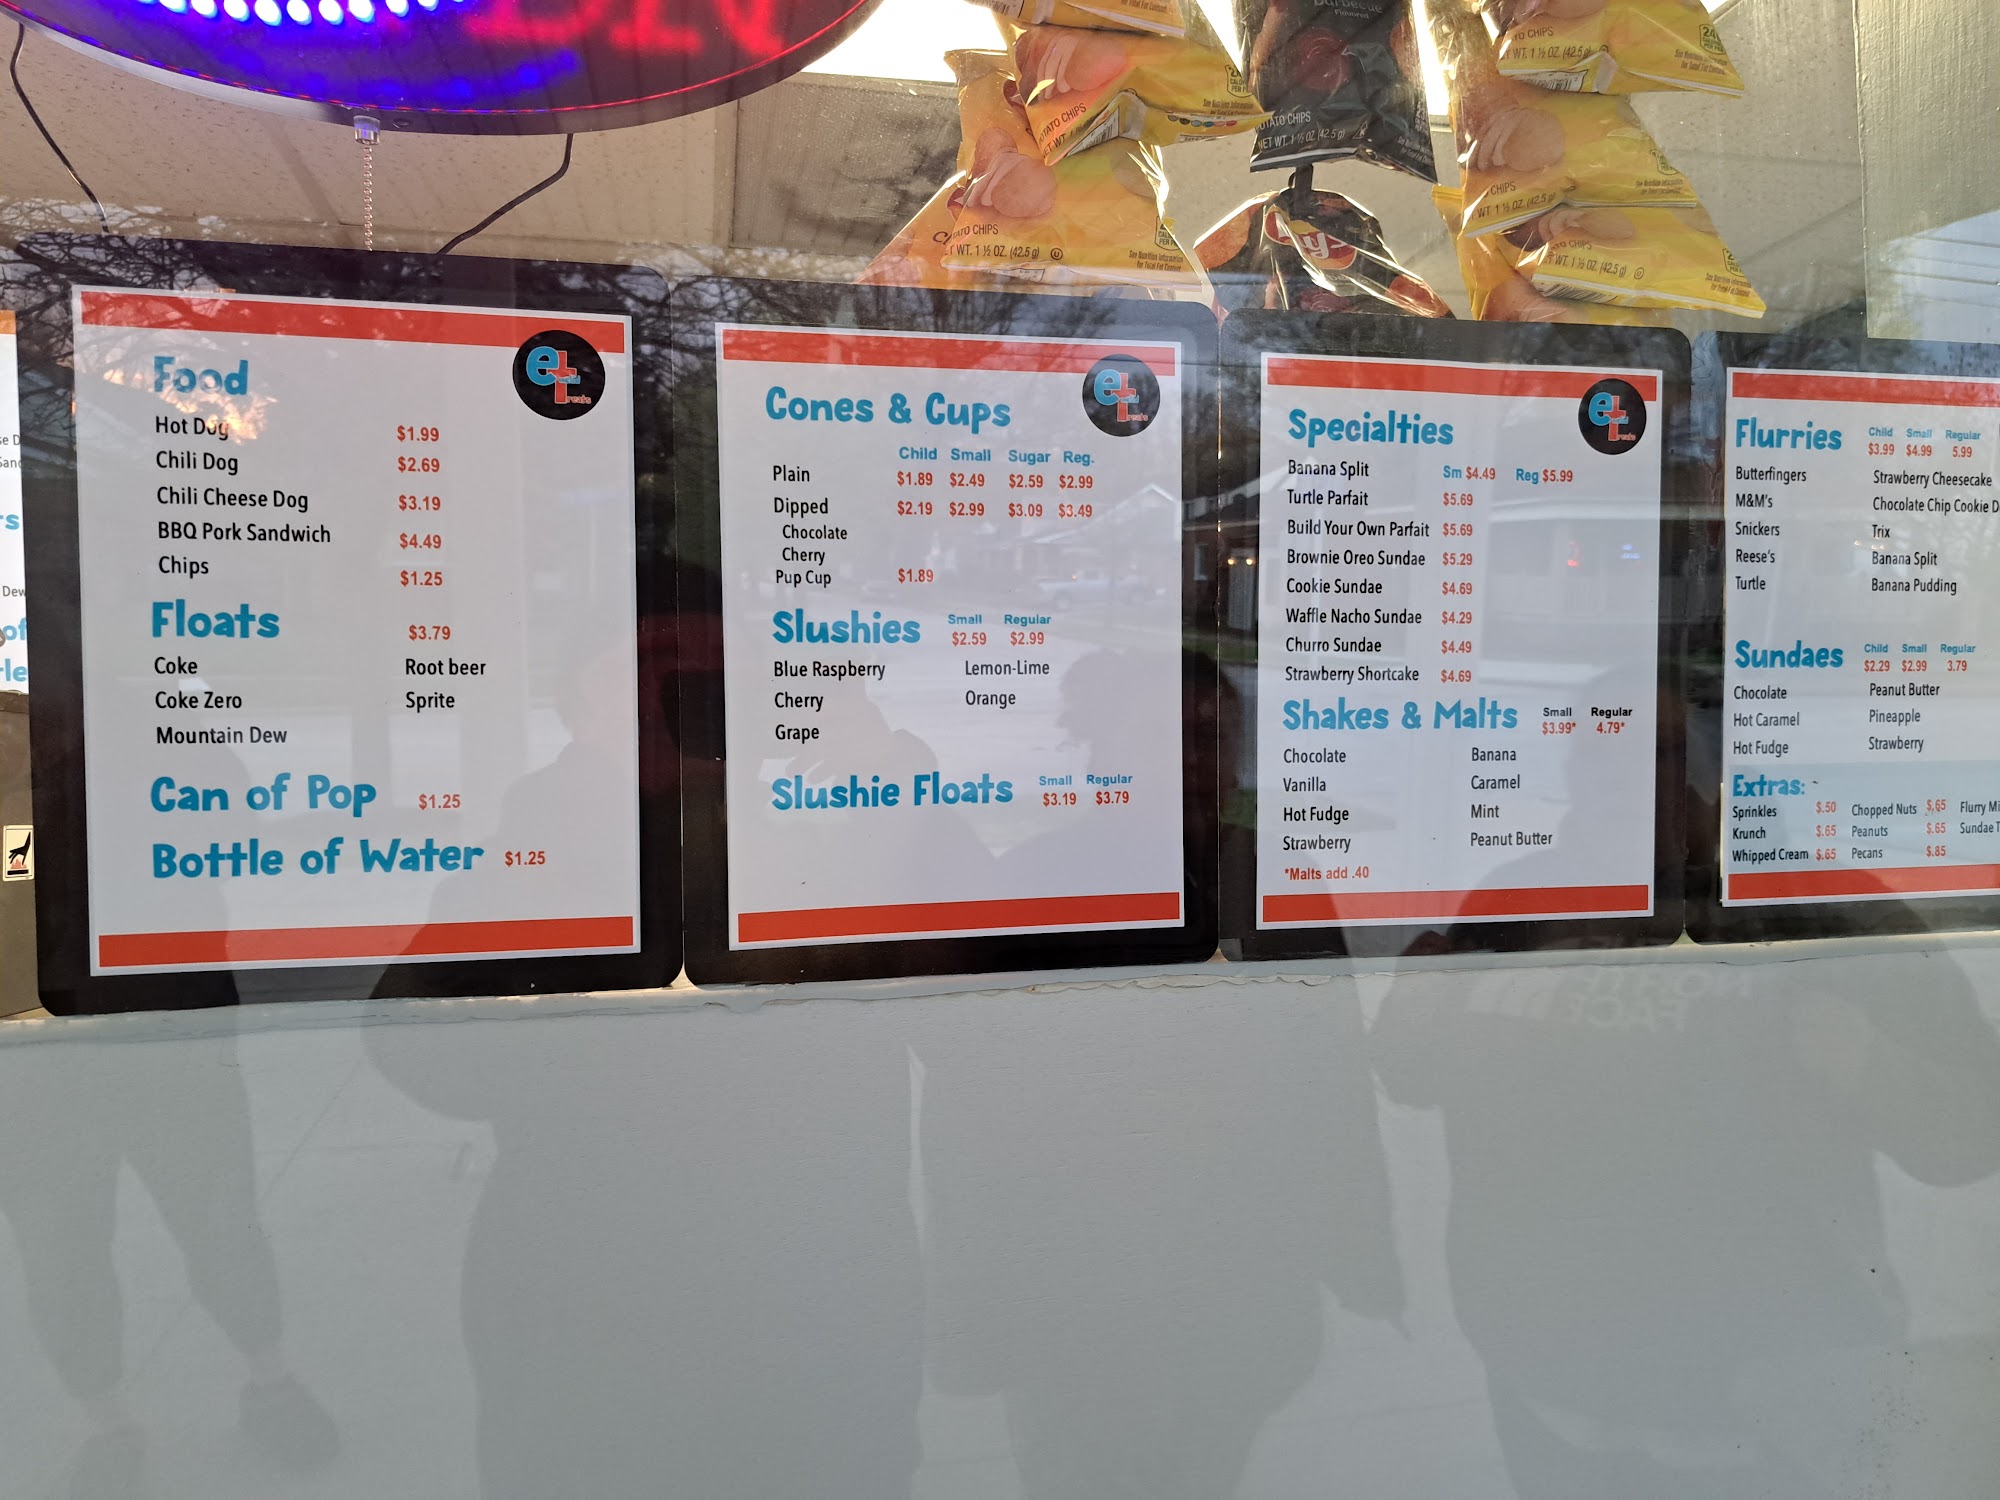 Food
Hot Dog $1.99
Chili Dog $2.69
Chili Cheese Dog $3.19
BBQ Pork Sandwich $4.49
Chips $1.25
Floats $3.79
Coke Root beer
Coke Zero Sprite
Mountain Dew
Can of Pop $1.25
Bottle of Water $1.25
Cones & Cups
Child Small Sugar Reg.
Plain $1.89 $2.49 $2.59 $2.99
Dipped $2.19 $2.99 $3.09 $3.49
Chocolate
Cherry
Pup Cup $1.89
Slushies Small Regular
$2.59 $2.99
Blue Raspberry Lemon-Lime
Cherry Orange
Grape
Slushie Floats Small Regular
$3.19 $3.79
Specialties
Banana Split Sm $4.49 Reg $5.99
Turtle Parfait $5.69
Build Your Own Parfait $5.69
Brownie Oreo Sundae $5.29
Cookie Sundae $4.69
Waffle Nacho Sundae $4.29
Churro Sundae $4.49
Strawberry Shortcake $4.69
Shakes & Malts Small Regular
$3.99* 4.79*
Chocolate Banana
Vanilla Caramel
Hot Fudge Mint
Strawberry Peanut Butter
*Malts add .40
Flurries Child Small Regular
$3.99 $4.99 5.99
Butterfingers Strawberry Cheesecake
M&M's Chocolate Chip Cookie D
Snickers Trix
Reese's Banana Split
Turtle Banana Pudding
Sundaes Child Small Regular
$2.29 $2.99 3.79
Chocolate Peanut Butter
Hot Caramel Pineapple
Hot Fudge Strawberry
Extras:
Sprinkles $.50 Chopped Nuts $.65 Flurry Mi
Krunch $.65 Peanuts $.65 Sundae T
Whipped Cream $.65 Pecans $.85
Barbecue
Flavored
POTATO CHIPS
NET WT. 1 ½ OZ (42.5 g)
TATO CHIPS
T WT. 1 ½ OZ. (42.5 g)
Lay's
TO CHIPS
WT. 1 ½ OZ. (42.5 g)
CHIPS
WT 1 ½ OZ. (42.5 g)
TO CHIPS
WT. 1 ½ OZ. (42.5 g)